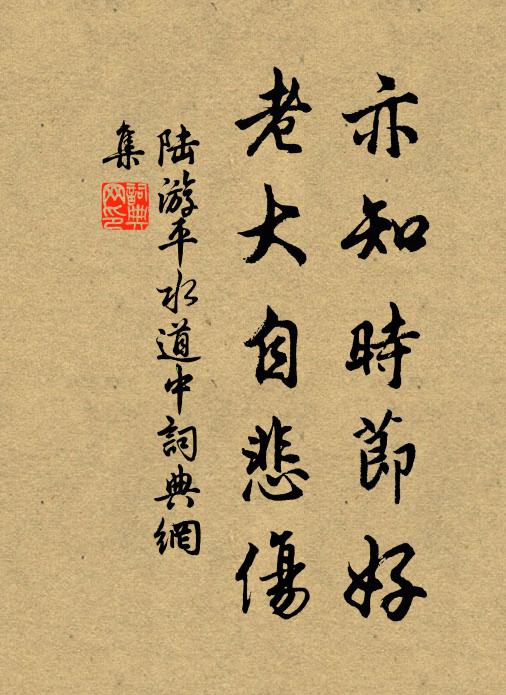 亦知時節好
老大自悲傷
陸游平水道中詞典網
集
詞典
网印